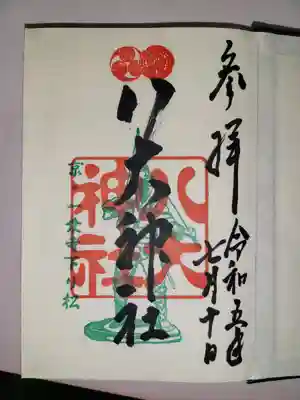 参拝
令和五年
七月十日
八大神社
八大
神社
京一乗寺下り松